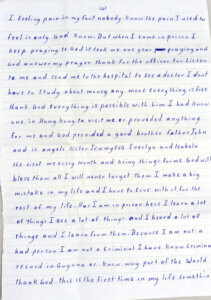 I feeling pain in my foot nobody know the pain I used to
feel is only God know. But when I came in prison I
keep praying to God it took me one year praying and
God answer my prayer thank for the officer for listen
to me and send me to the hospital to see a doctor I don't
have to study about money any more everything is free
thank God everything is possible with him I had know
one in Hong Kong to visit me or provided anything
for me and God provided a good brother Father John
and is angels Sister Jennyfer Evelyn and Isabela
the visit me every month and bring things for me God will
bless them all I will never forget them I make a big
mistake in my life and I have to live with it for the
rest of my life. Has I am in prison here I learn a lot
of things I see a lot of things and I heard a lot of
things and I learn from them. Because I am not a
bad person I am not a Criminal I have know Criminal
record in Guyana or know way part of the World
thank God. this is the first time in my life somethin